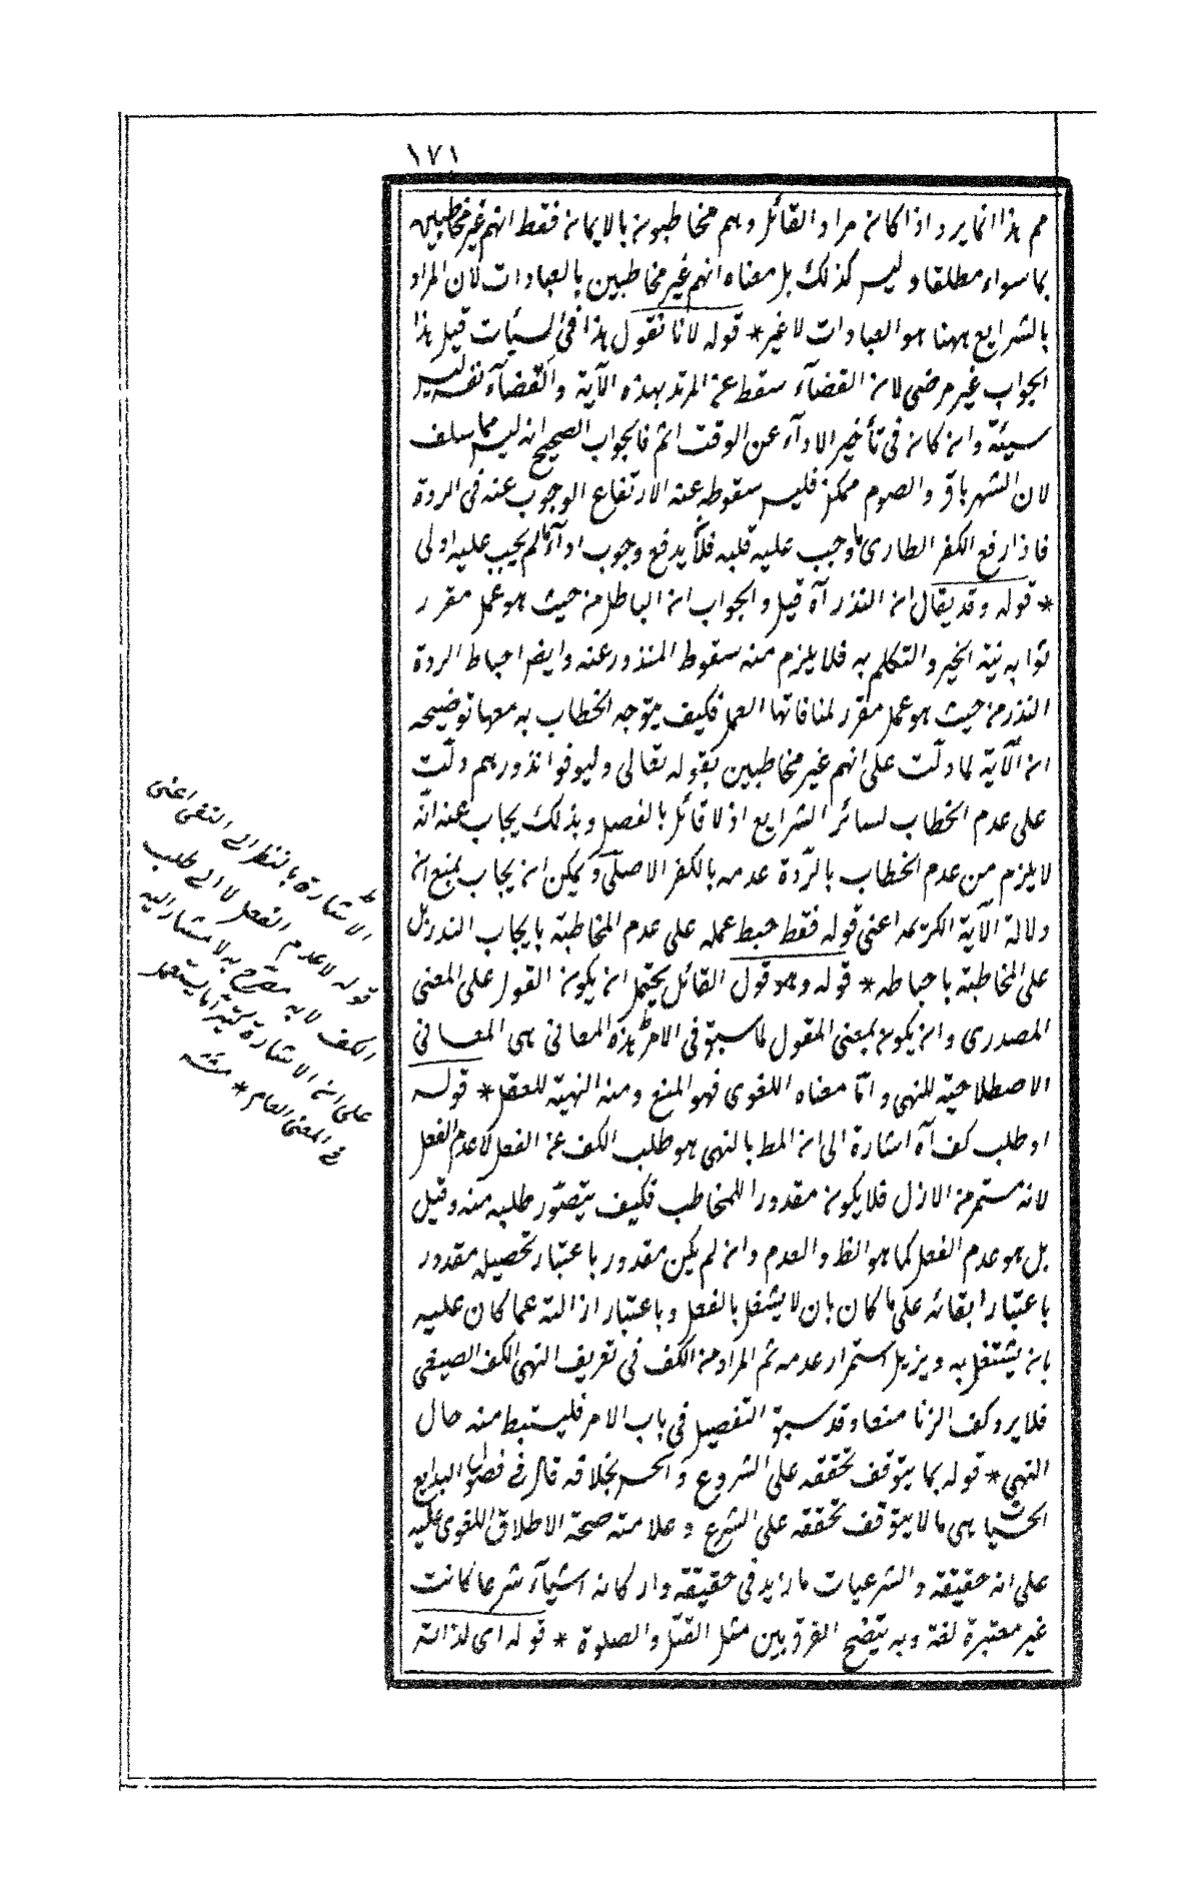 ١٧١
مم هذا انما يرد اذا كان مراد القائل وهم مخاطبون بالايمان فقط انهم غير مخاطبين
بما سواه مطلقا وليس كذلك بل معناه انهم غير مخاطبين بالعبادات لان المراد
بالشرايع ههنا هو العبادات لا غير * قوله لانا نقول هذا فى السيئات قيل هذا
الجواب غير مرضى لان القضآء سقط عن المرتد بهذه الآية والقضآء نفسه ليس
سيئة وان كان فى تأخير الادآء عن الوقت اثم فالجواب الصحيح انه ليس مما سلف
لان الشهر باق والصوم ممكن فليس سقوطه عنه الا ارتفاع الوجوب عنه فى الردة
فاذا رفع الكفر الطارى ما وجب عليه قبله فلأن يدفع وجوب ادآء ما لم يجب عليه اولى
* قوله وقد يقال ان النذر آه قيل والجواب ان الباطل من حيث هو عمل مقرر
ثوابه نية الخير والتكلم به فلا يلزم منه سقوط المنذور عنه وايض احباط الردة
النذر من حيث هو عمل مقرر لمنافاتها العمل فكيف يتوجه الخطاب به معها توضيحه
ان الآية لما دلّت على انهم غير مخاطبين بقوله تعالى وليوفوا نذورهم دلّت
على عدم الخطاب لسائر الشرايع اذ لا قائل بالفصل وبذلك يجاب عنه انّه
لا يلزم من عدم الخطاب بالرّدة عدمه بالكفر الاصلّى ويمكن ان يجاب بمنع ان
دلالة الآية الكريمة اعنى قوله فقط حبط عمله على عدم المخاطبة بايجاب النذر بل
على المخاطبة باحباطه * قوله وهو قول القائل يحتمل ان يكون القول على المعنى
المصدرى وان يكون بمعنى المقول لما سبق فى الامر هذه المعانى هى المعانى
الاصطلاحية للنهى وامّا معناه اللغوى فهو المنع ومنه النهية للعقل * قوله
او طلب كف آه اشارة الى ان المط بالنهى هو طلب الكف عن الفعل لا عدم الفعل
لانه مستمر من الازل فلا يكون مقدورا للمخاطب فكيف يتصّور طلبه منه وقيل
بل هو عدم الفعل كما هو الظ والعدم وان لم يكن مقدور باعتبار تحصيله مقدور
باعتبار ابقائه على ما كان بان لا يشتغل بالفعل وباعتبار ازالته عما كان عليه
بان يشتغل به ويزيل استمرار عدمه ثم المراد من الكف فى تعريف النهى الكف الصيغى
فلا يرد كف الزنا منعا وقد سبق التفصيل فى باب الامر فليستنبط منه حال
النهى * قوله بما يتوقف تحققه على الشروع والحس بخلافه قال فى فصول البدايع
الحسيات هى ما لا يتوقف تحققه على الشرع وعلامته صحة الاطلاق اللغوى عليه
على انه حقيقة والشرعيات ما زايد فى حقيقته واركانه اشيآء شرعا كانت
غير معتبرة لغة وبه يتضح الفرق بين مثل القتل والصلوة * قوله اى لذاته
الاشارة بالنظر الى النفى اعنى
قوله لا عدم الفعل لا الى طلب
الكف لانه مصّرح به لا مشار اليه
على ان الاشارة كثيرا ما يستعمل
فى المعنى العام * منه